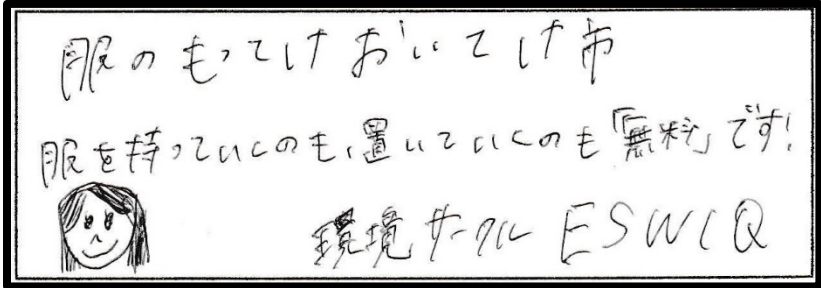 服のもってけおいてけ市
服を持っていくのも、置いていくのも「無料」です!
環境サークル ESWIQ